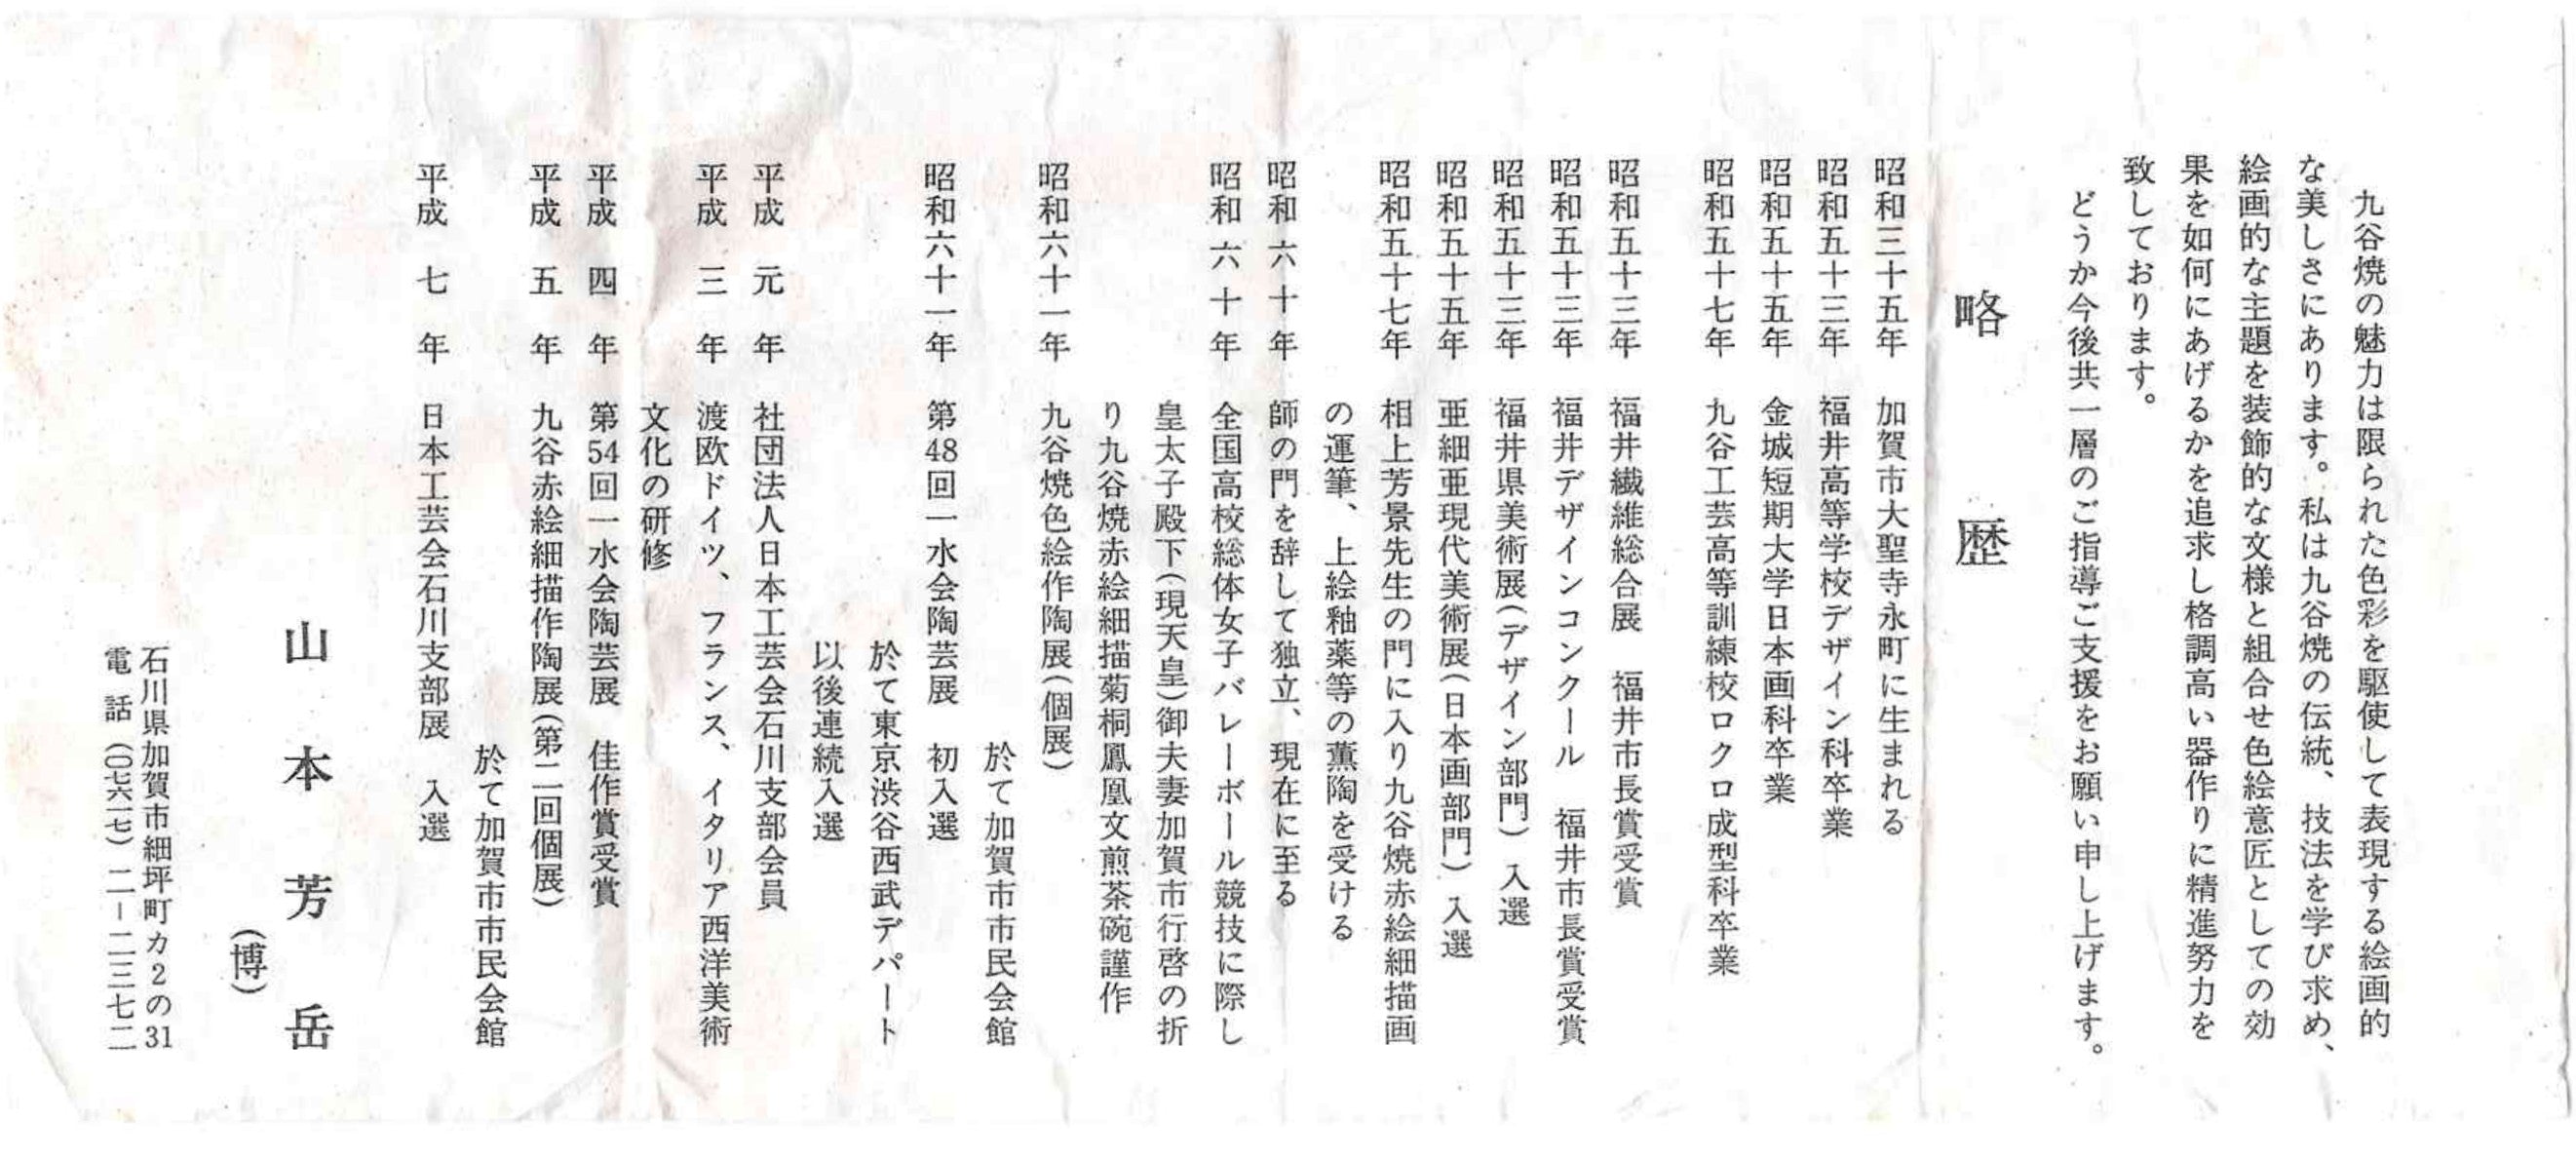 九谷焼の魅力は限られた色彩を駆使して表現する絵画的
な美しさにあります。私は九谷焼の伝統、技法を学び求め、
絵画的な主題を装飾的な文様と組合せ色絵意匠としての効
果を如何にあげるかを追求し格調高い器作りに精進努力を
致しております。
どうか今後共一層のご指導ご支援をお願い申し上げます。
略歴
昭和三十五年 加賀市大聖寺永町に生まれる
昭和五十三年 福井高等学校デザイン科卒業
昭和五十五年 金城短期大学日本画科卒業
昭和五十七年 九谷工芸高等訓練校ロクロ成型科卒業
昭和五十三年 福井繊維総合展 福井市長賞受賞
昭和五十三年 福井デザインコンクール 福井市長賞受賞
昭和五十三年 福井県美術展(デザイン部門)入選
昭和五十五年 亜細亜現代美術展(日本画部門)入選
昭和五十七年 相上芳景先生の門に入り九谷焼赤絵細描画
の運筆、上絵釉薬等の薫陶を受ける
昭和六十年 師の門を辞して独立、現在に至る
昭和六十年 全国高校総体女子バレーボール競技に際し
皇太子殿下(現天皇)御夫妻加賀市行啓の折
り九谷焼赤絵細描菊桐鳳凰文煎茶碗謹作
昭和六十一年 九谷焼色絵作陶展(個展)
於て加賀市市民会館
昭和六十一年 第48回一水会陶芸展 初入選
於て東京渋谷西武デパート
以後連続入選
平成元年 社団法人日本工芸会石川支部会員
平成三年 渡欧ドイツ、フランス、イタリア西洋美術
文化の研修
平成四年 第54回一水会陶芸展 佳作賞受賞
平成五年 九谷赤絵細描作陶展(第二回個展)
於て加賀市市民会館
平成七年 日本工芸会石川支部展 入選
山本芳岳
(博)
石川県加賀市細坪町カ2の31
電話(〇七六一七)二-二三七二